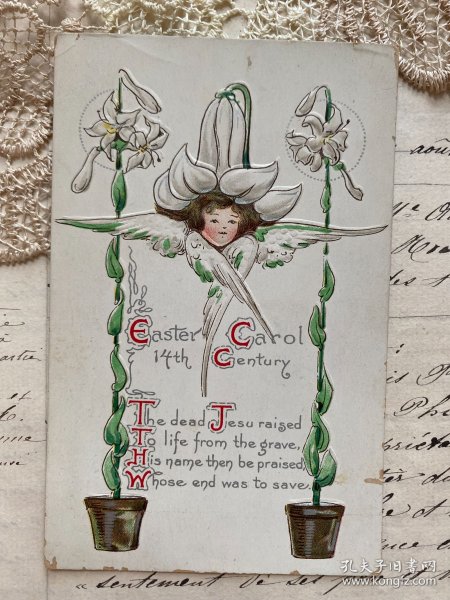 Easter Carol
14th Century
The dead Jesu raised
To life from the grave,
His name then be praised,
Whose end was to save.
août
« sentement de ses
孔夫子旧书网
www.kongfz.com